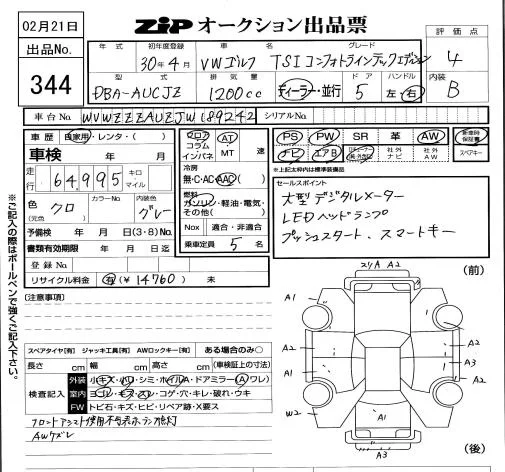 02月21日
ZIP オークション出品票
出品No.
344
年式 初年度登録 車名 グレード 評価点
30年4月 VWゴルフ TSIコンフォートラインテックエディション 4
型式 排気量 ドア ハンドル 内装
DBA-AUCJZ 1200cc ディーラー・並行 5 左・右 B
車台No. WVWZZZAUZJW189242 シリアルNo.
車歴 自家用・レンタ・( )
フロア コラム インパネ
AT MT 速
PS PW SR 革 AW 新車時保証書
車検 年 月
ナビ エアB 社外ナビ 社外AW スペアキー
冷房
無・C・AC・AAC
※上記太枠内は標準装備品
走行 64,995 キロ マイル
色(元色) クロ カラーNo. 内装色 グレー
燃料
ガソリン・軽油・電気・その他( )
セールスポイント
大型デジタルメーター
LEDヘッドランプ
プッシュスタート、スマートキー
予備検 年 月 日(3・8)No.
Nox 適合・非適合
書類有効期限 年 月 日迄
乗車定員 5 名
登録No.
リサイクル料金 有(¥14760) 未
※ご記入の際はボールペンで強くご記入下さい。
(注意事項)
スリA A2
(前)
A1
A1
A2
A2
A3
A2
W2
A1
A1
A3
(後)
スペアタイヤ[有] ジャッキ工具[有] AWロックキー[有] ある場合のみ○
長さ cm 幅 cm 高さ cm (車検証上の寸法)
検査記入
外装 小キズ・小凹・シミ・ホイルA・ドアミラー(A ワレ)
室内 ヨゴレ・キズ・スレ・コゲ・穴・キレ・破れ・ウキ
FW トビ石・キズ・ヒビ・リペア跡・X要ス
フロントアシスト使用不可表示ランプ点灯
AWケズレ